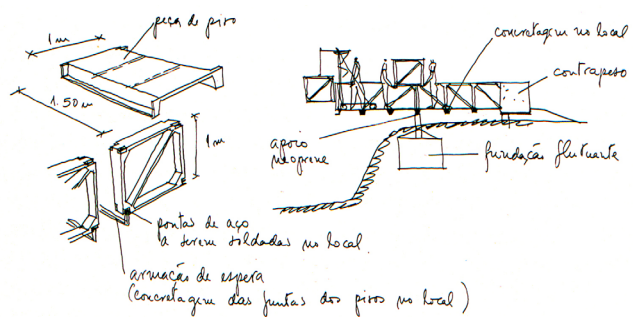 peça de piso
1m
1.50m
1m
pontas de aço
a serem soldadas no local
armação de espera
(concretagem das juntas dos pisos no local)
concretagem no local
contrapeso
apoio
neoprene
fundação flutuante